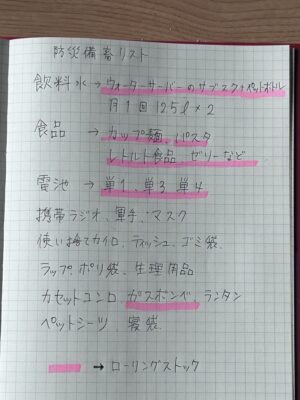 防災備蓄リスト
飲料水→ウォーターサーバーのサブスク+ペットボトル
月1回 12.5ℓ×2
食品 → カップ麺、パスタ
レトルト食品、ゼリーなど
電池 → 単1、単3 単4
携帯ラジオ、軍手、マスク
使い捨てカイロ、ティッシュ、ゴミ袋、
ラップ ポリ袋、生理用品
カセットコンロ、ガスボンベ、ランタン
ペットシーツ、寝袋
→ ローリングストック